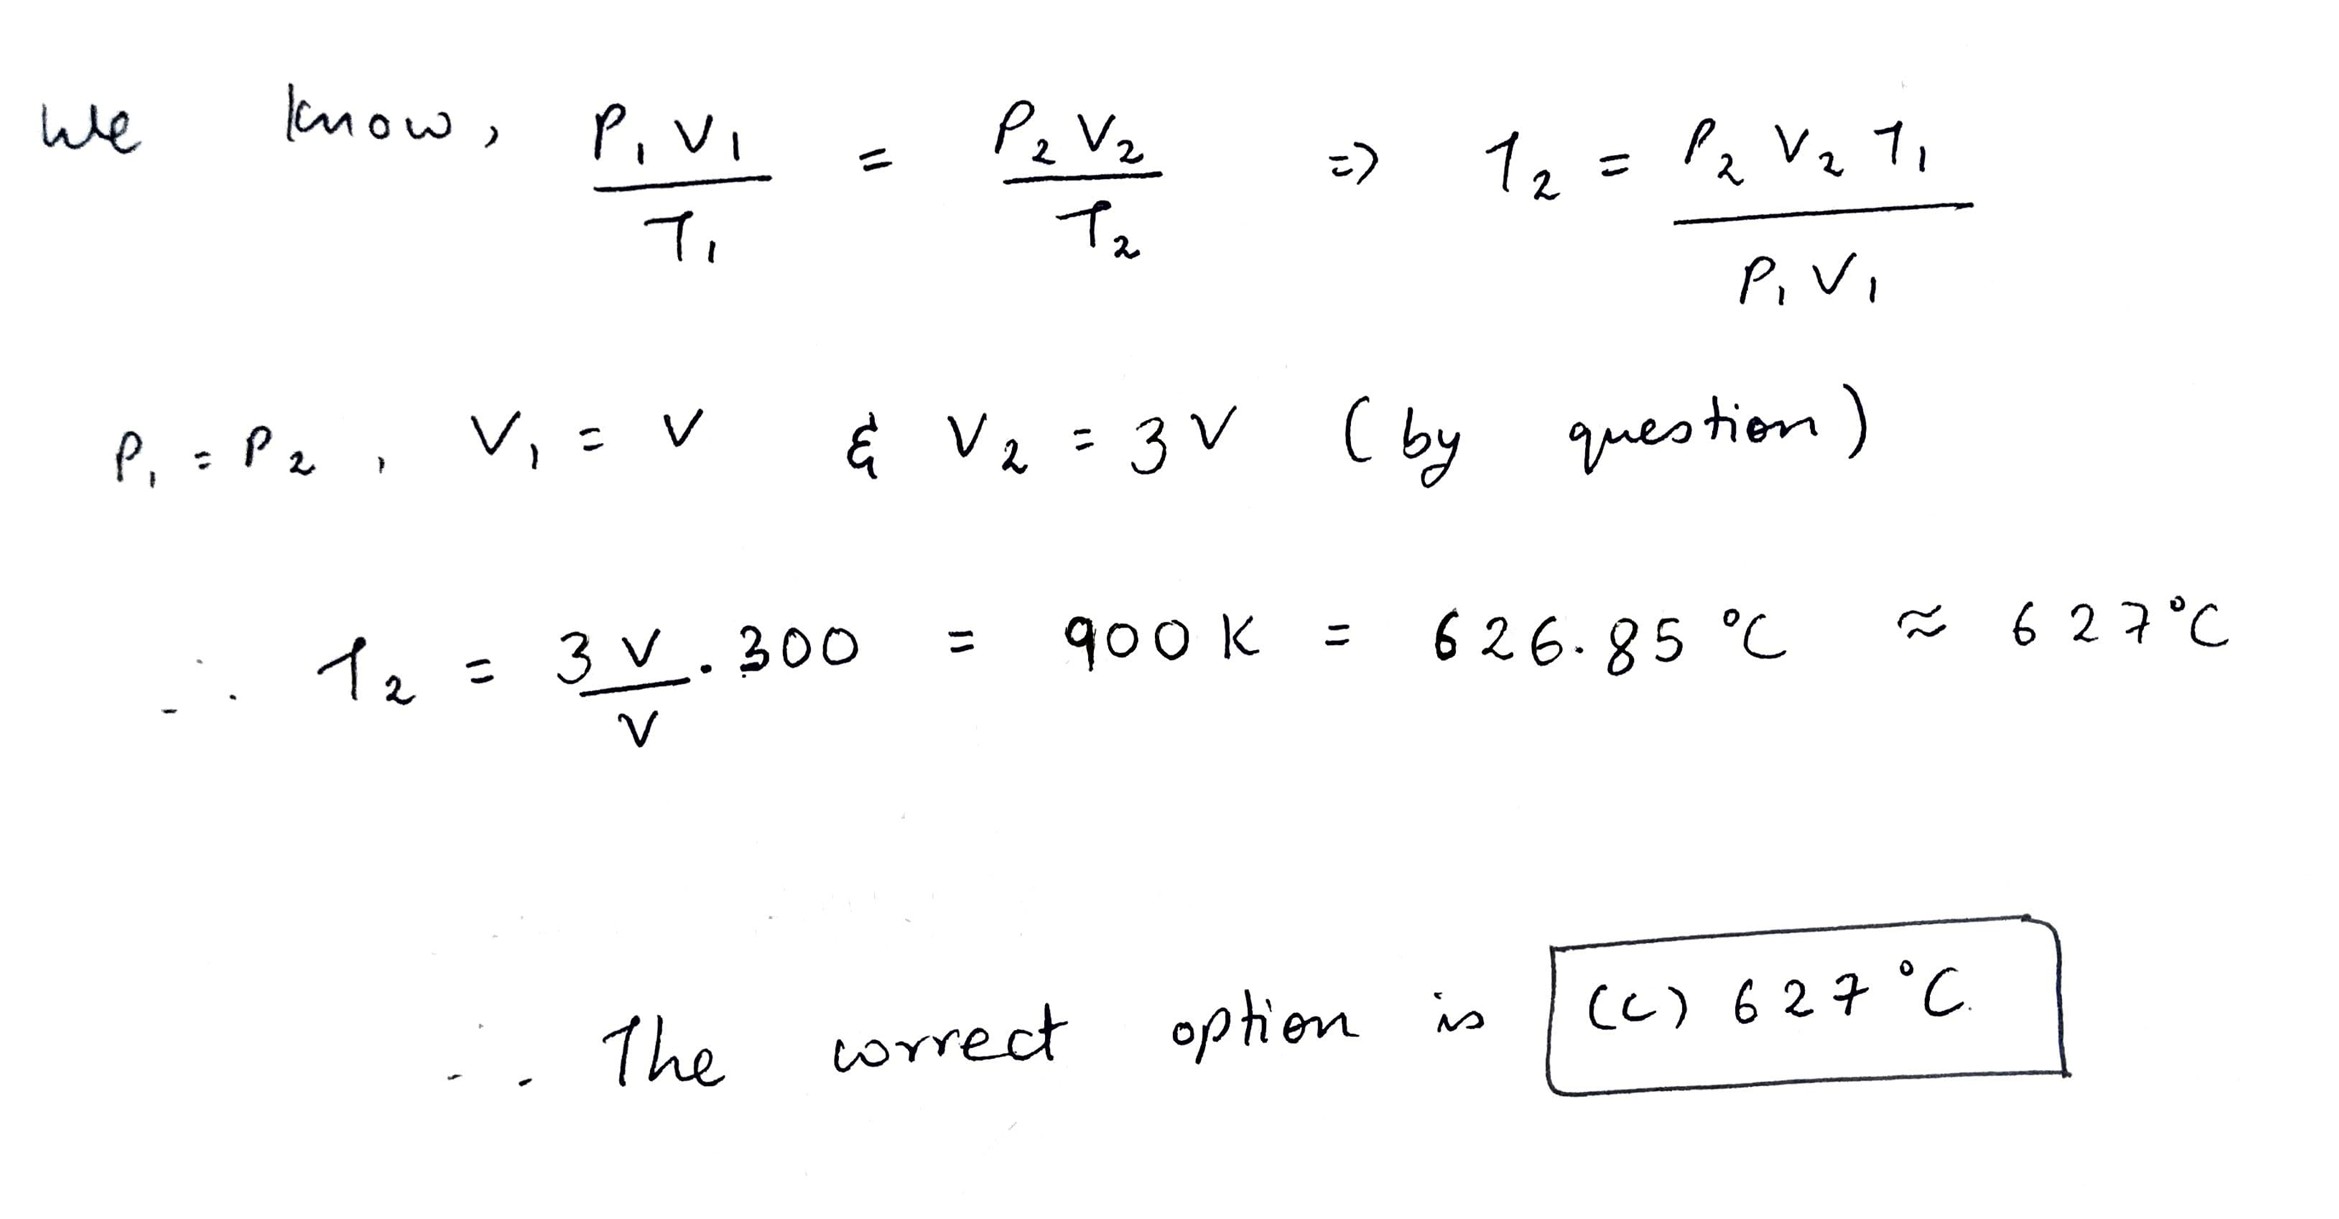 We know, P₁V₁/T₁ = P₂V₂/T₂ => T₂ = P₂V₂T₁/P₁V₁
P₁ = P₂, V₁ = V & V₂ = 3V (by question)
∴ T₂ = 3V/V . 300 = 900K = 626.85°C ≈ 627°C
∴ The correct option is (C) 627°C.